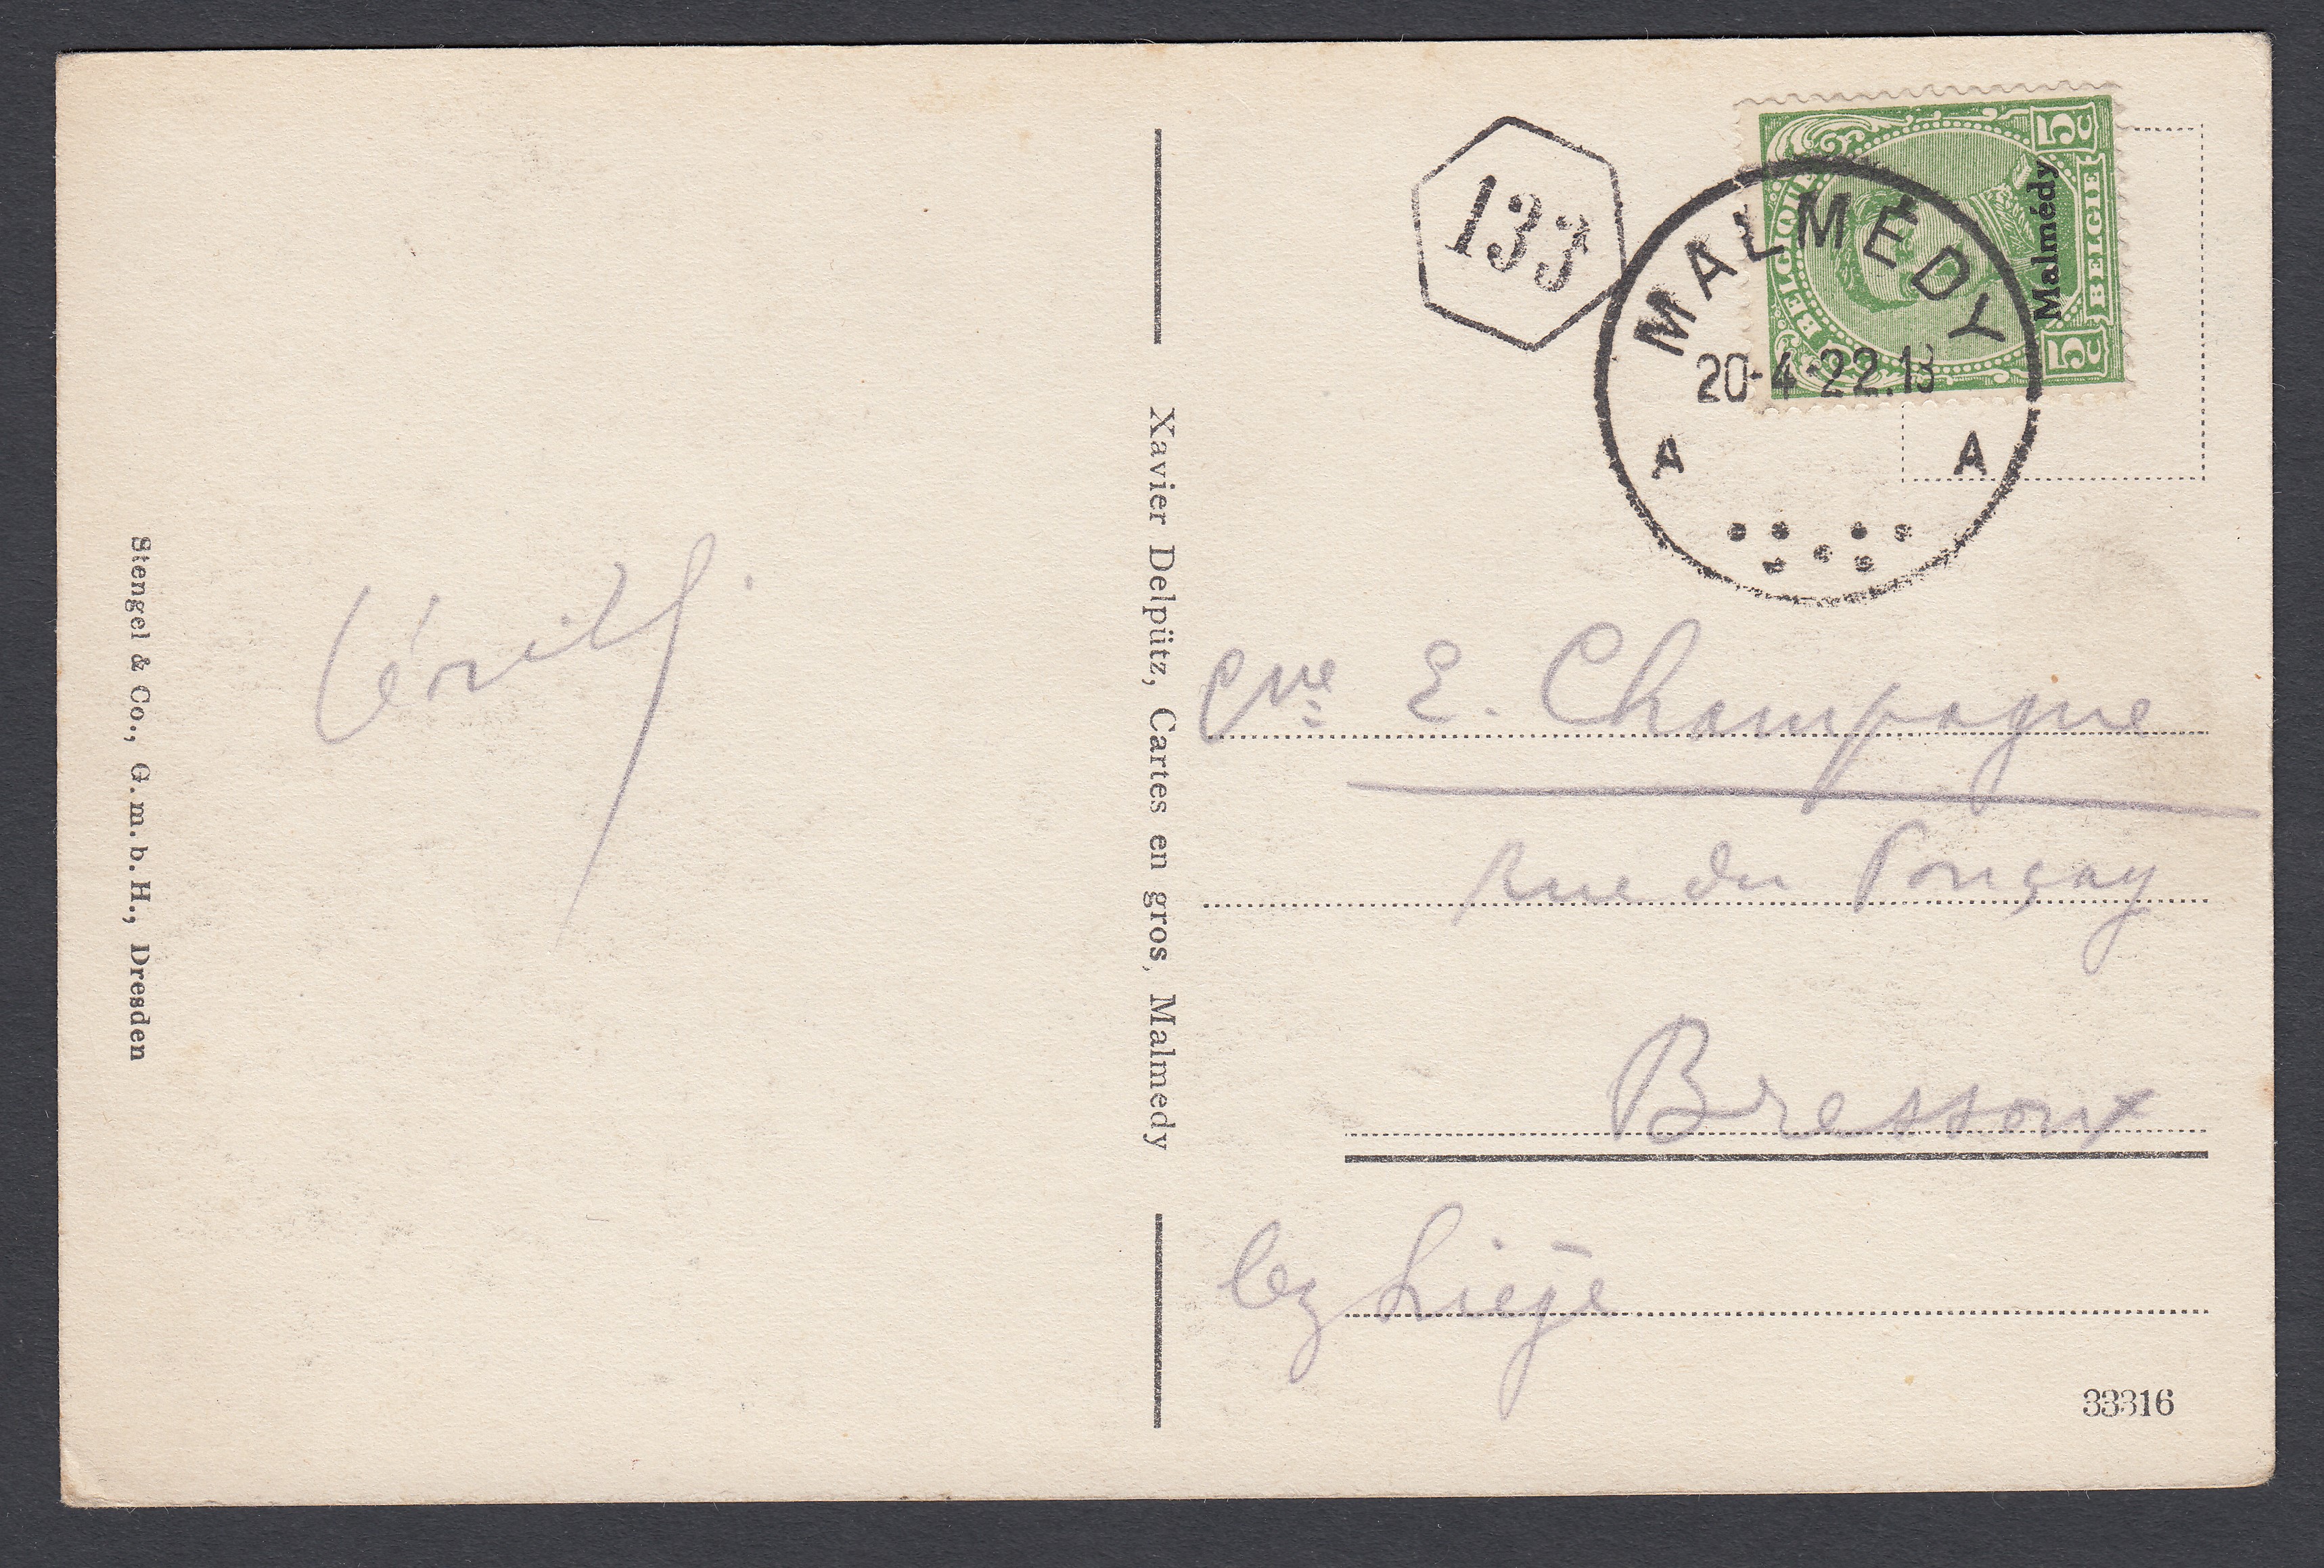 Stengel & Co., G. m. b. H., Dresden
Xavier Delpütz, Cartes en gros, Malmedy
133
BELGIQUE
5c BELGIE 5c
Malmédy
MALMÉDY
20-4-22.13
A A
E. Champagne
Rue du Ponçay
Bressoux
lez Liège
33316